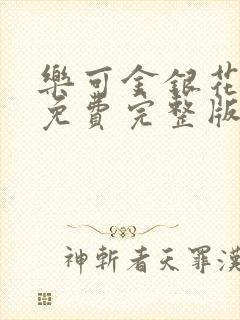 樂可金銀花
免費完整版
神斬者天罪漢